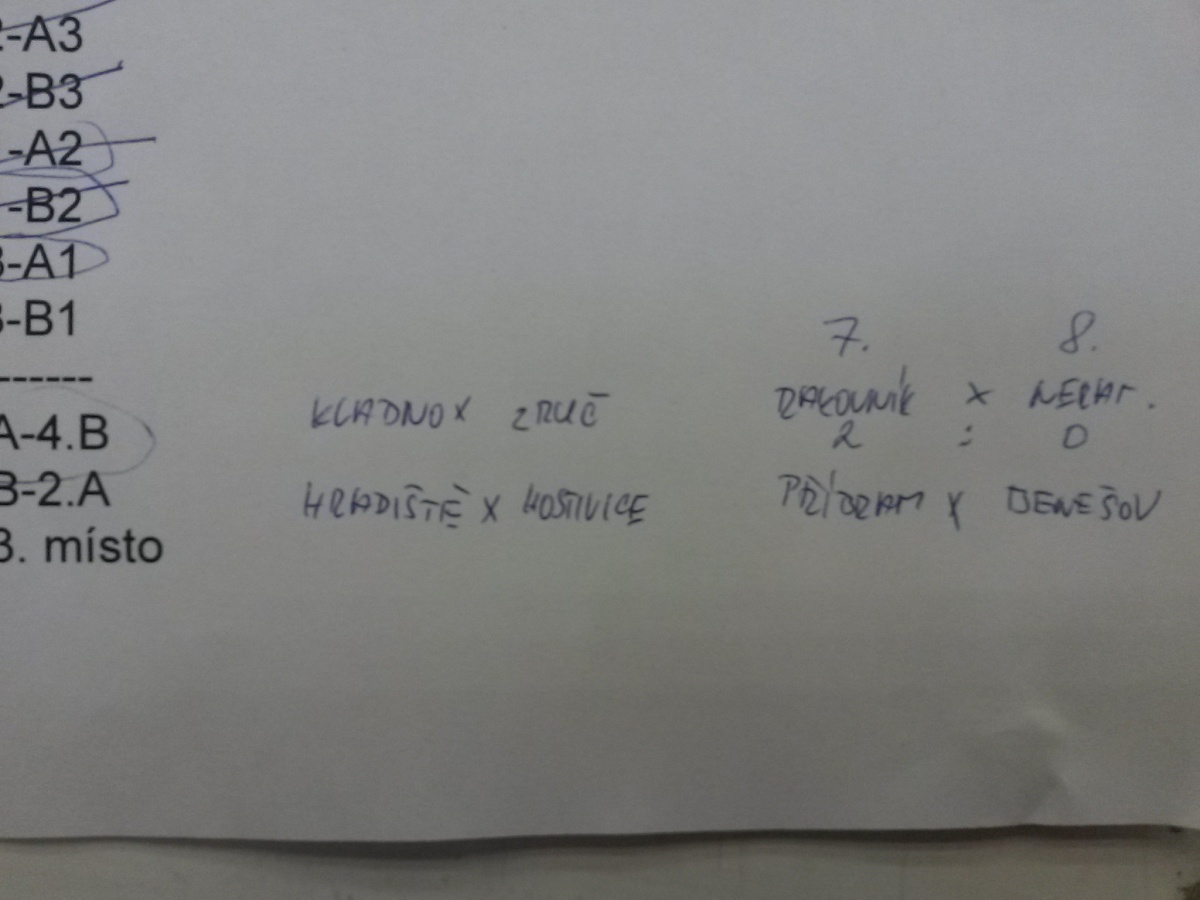 -A3
-B3
-A2
-B2
-A1
-B1
------
7. 8.
A-4.B KLADNO X ZRUČ RAKOVNÍK X NERAT.
2 : 0
B-2.A HRADIŠTĚ X HOSTIVICE PŘÍBRAM X BENEŠOV
3. místo